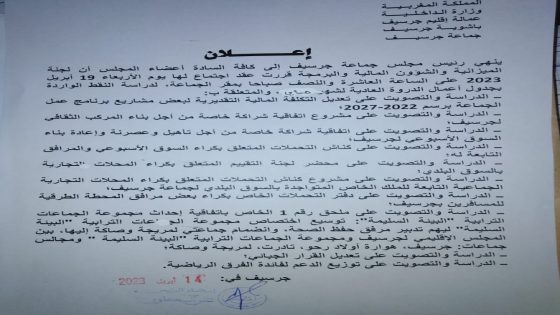 المملكة المغربية
وزارة الداخلية
عمالة إقليم جرسيف
باشوية جرسيف
جماعة جرسيف
إعـــلان
ينهي رئيس مجلس جماعة جرسيف إلى كافة السادة أعضاء المجلس أن لجنة
الميزانية والشؤون المالية والبرمجة قررت عقد اجتماع لها يوم الأربعاء 19 أبريل
2023 على الساعة العاشرة والنصف صباحا بمقر الجماعة، لدراسة النقط الواردة
بجدول أعمال الدورة العادية لشهر والمتعلقة بـ:
– الدراسة والتصويت على تعديل التكلفة المالية التقديرية لبعض مشاريع برنامج عمل
الجماعة برسم 2022-2027؛
– الدراسة والتصويت على مشروع اتفاقية شراكة خاصة من أجل بناء المركب الثقافي
لجرسيف؛
– الدراسة والتصويت على اتفاقية شراكة خاصة من أجل تأهيل وعصرنة وإعادة بناء
السوق الأسبوعي لجرسيف؛
– الدراسة والتصويت على كناش التحملات المتعلق بكراء السوق الأسبوعي والمرافق
التابعة له؛
– الدراسة والتصويت على محضر لجنة التقييم المتعلق بكراء المحلات التجارية
بالسوق البلدي؛
– الدراسة والتصويت على مشروع كناش التحملات المتعلق بكراء المحلات التجارية
الجماعية التابعة للملك الخاص المتواجدة بالسوق البلدي لجماعة جرسيف؛
– الدراسة والتصويت على دفتر التحملات الخاص بكراء بعض مرافق المحطة الطرقية
للمسافرين بجرسيف؛
– الدراسة والتصويت على ملحق رقم الخاص باتفاقية إحداث مجموعة الجماعات
الترابية "البيئة السليمة": توسيع اختصاص مجموعة الترابية "البيئة
السليمة" ليهم تدبير مرفق حفظ الصحة، وانضمام جماعتي لمريجة وصاكة إليها، بين
المجلس الإقليمي لجرسيف ومجموعة الجماعات الترابية "البيئة السليمة" ومجالس
جماعات: جرسيف، هوارة أولاد رحو، تادرت، لمريجة وصاكة؛
– الدراسة والتصويت على تعديل القرار الجبائي؛
– الدراسة والتصويت على توزيع الدعم لفائدة الفرق الرياضية.
جرسيف في: 14 أبريل 2023